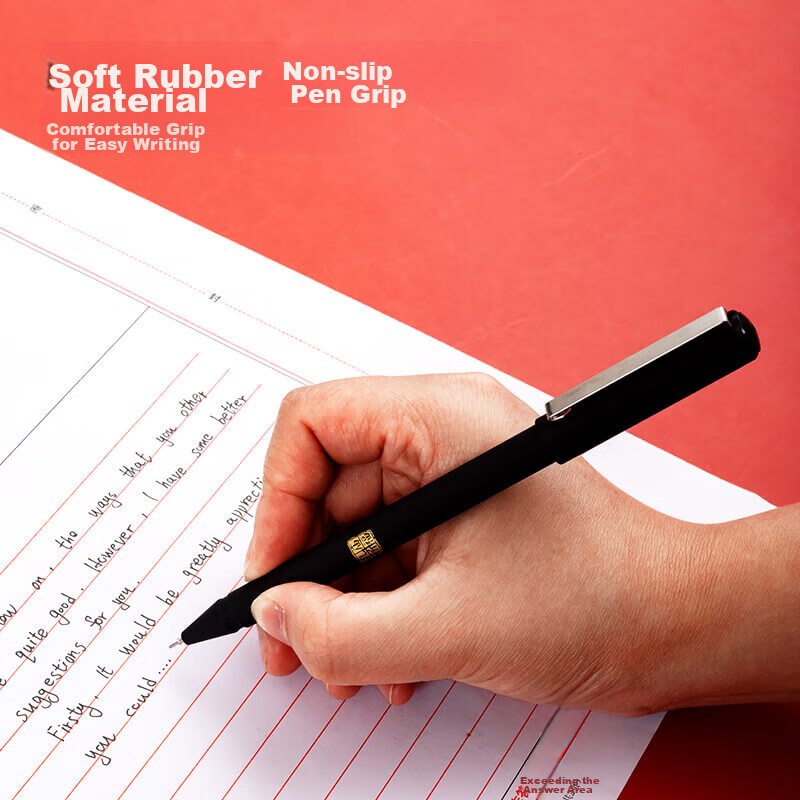 Soft Rubber
Material
Non-slip
Pen Grip
Comfortable Grip
for Easy Writing
on, the ways that you other
quite good. However, I have some better
suggestions for you.
Firsty, it would be greatly appreci
you could.....
Exceeding the
Answer Area